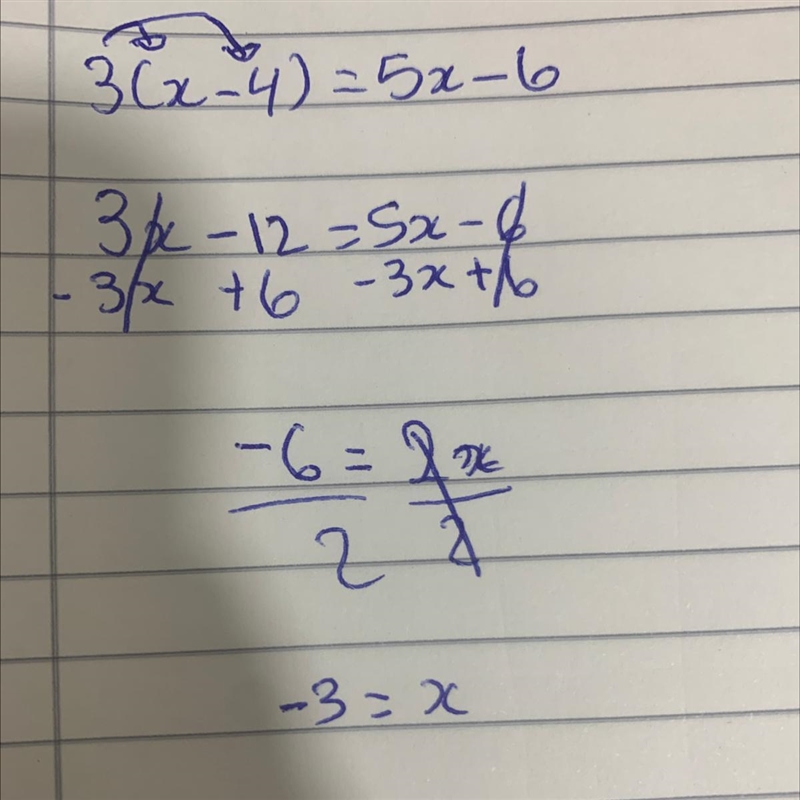 3(x-4)=5x-6
3x-12=5x-6
-3x +6 -3x+6
-6=2x
2 2
-3=x